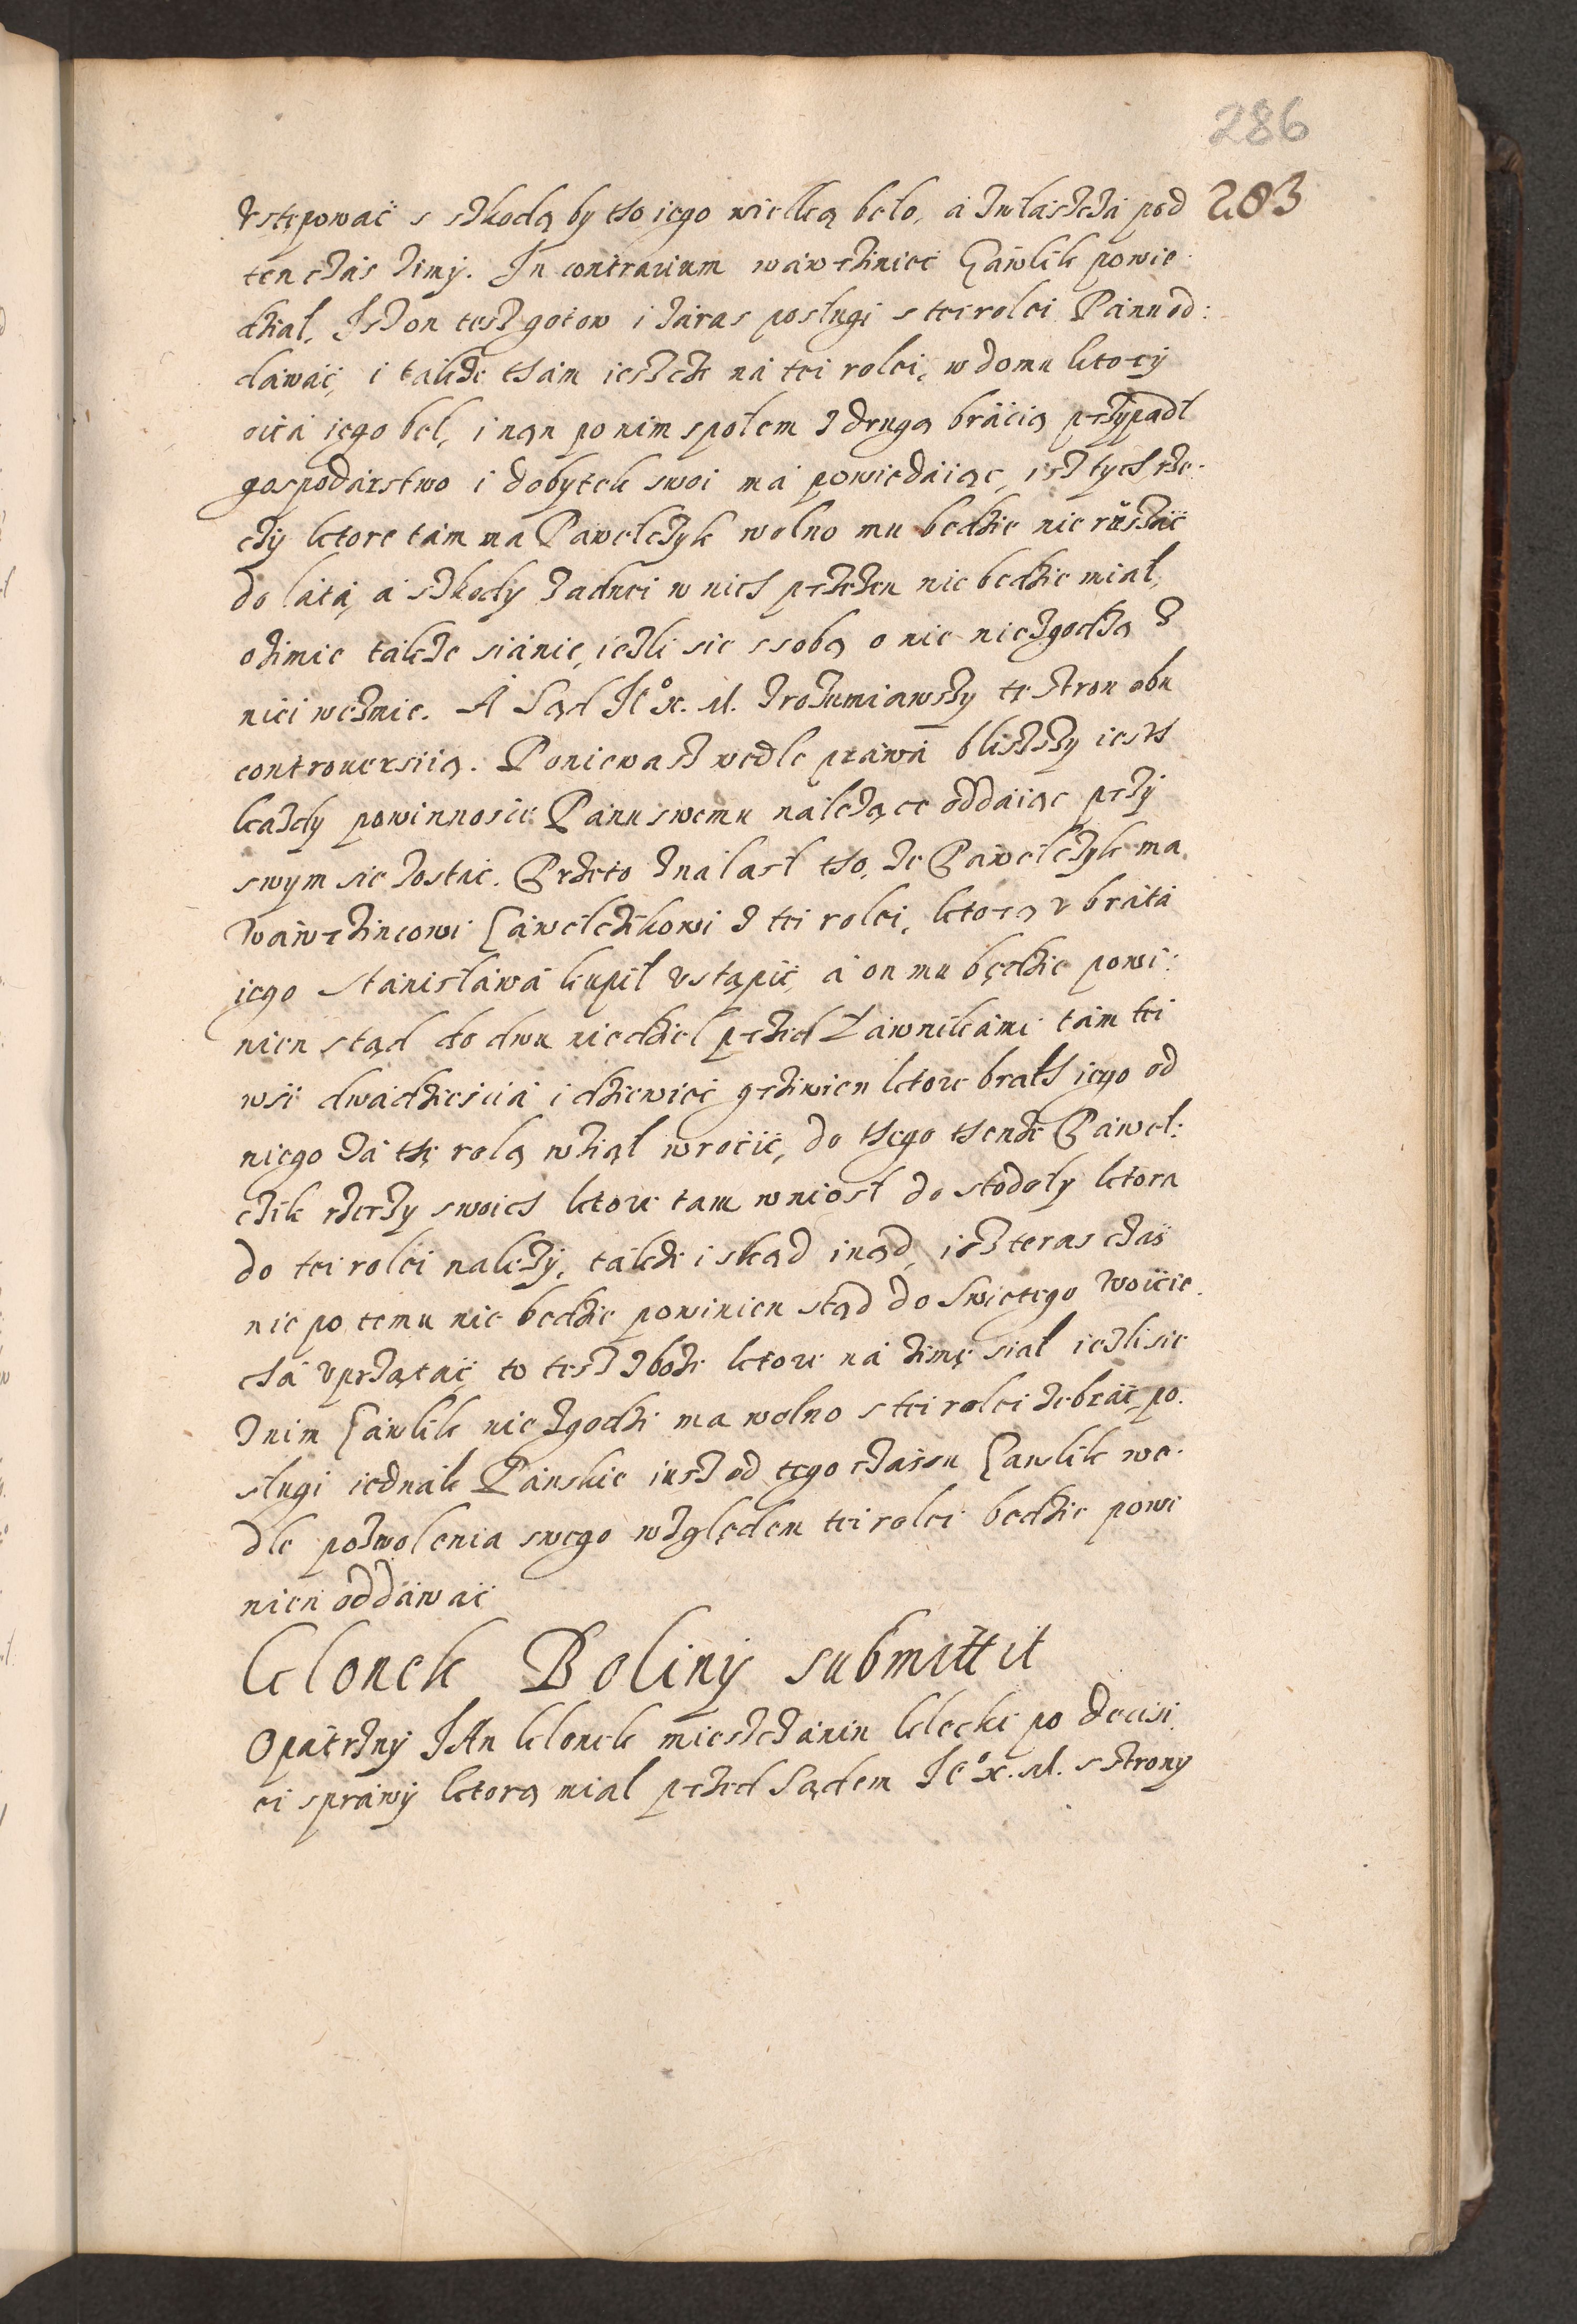 286
vstępowaċ s szkodą by tho iego wielką beło, á zwłaszczá pod 203
ten czás zimÿ. In contrarium wáwrziniec Gáwlik powie
dział. Isz on tesz gotow i záras posługi s tei rolei Pánu od:
dáwáċ, i tákze thám ieszcze ná tei rolei, w domu ktorÿ
oicá iego bel, i nąn po nim społem z drugą bráċią przÿpadł
gospodárstwo i dobytek swoi má powiedáiąc, isz tych rze:
czÿ ktore tám ma Páwelczyk wolno mu bedzie nie růszáċ
do látá, á szkody zadnei w nich przezen nie bedzie miał,
ozimie tákze siánie, iezli sie s sobą o nie niezgodzą z
niċi wezmie. A Sąd Ieº x. M. zrozumiawszy te stron obu
controuersiią. Poniewasz wedle práwá bliszszy iesth
kazdy powinnosċi Pánu swemu nalezące oddáiąc przÿ
swym sie zostáċ. Przeto ználasł tho, ze Páwelczyk ma
Wáwrzincowi Gáwelczikowi z tei rolei, ktorą v brátá
iego Stánisłáwá kupił vstąpiċ, á on mu będzie powi:
nien stąd do dwu niedziel przed Łáwnikámi tám tei
wsi dwádziesċiá i dziewieċ grziwien ktore brath iego od
niego zá thę rolą wziął wroċiċ, do thego thenze Páwel:
czik rzeczy swoich ktore tam wniosł do stodoły ktora
do tei rolei nalezÿ, tákze i skąd inąd, isz teras czás
nie po temu nie bedzie powinien stąd do Swietego Woiċie
chá vprzątaċ, to tesz zboze ktore ná zimę siał iezli sie
z nim Gáwlik nie zgodzi ma wolno s tei rolei zebráċ, po
sługi iednák Páńskie iusz od tego czásu Gawlik we
dle pozwolenia swego względem tei rolei bedzie powi
nien oddáwáċ
Klonek Bolinÿ submittit
Opátrznÿ IAn Klonek mieszczánin kielecki po decisi
ei spráwÿ ktorą miał przed Sądem Ieº x. M. s strony